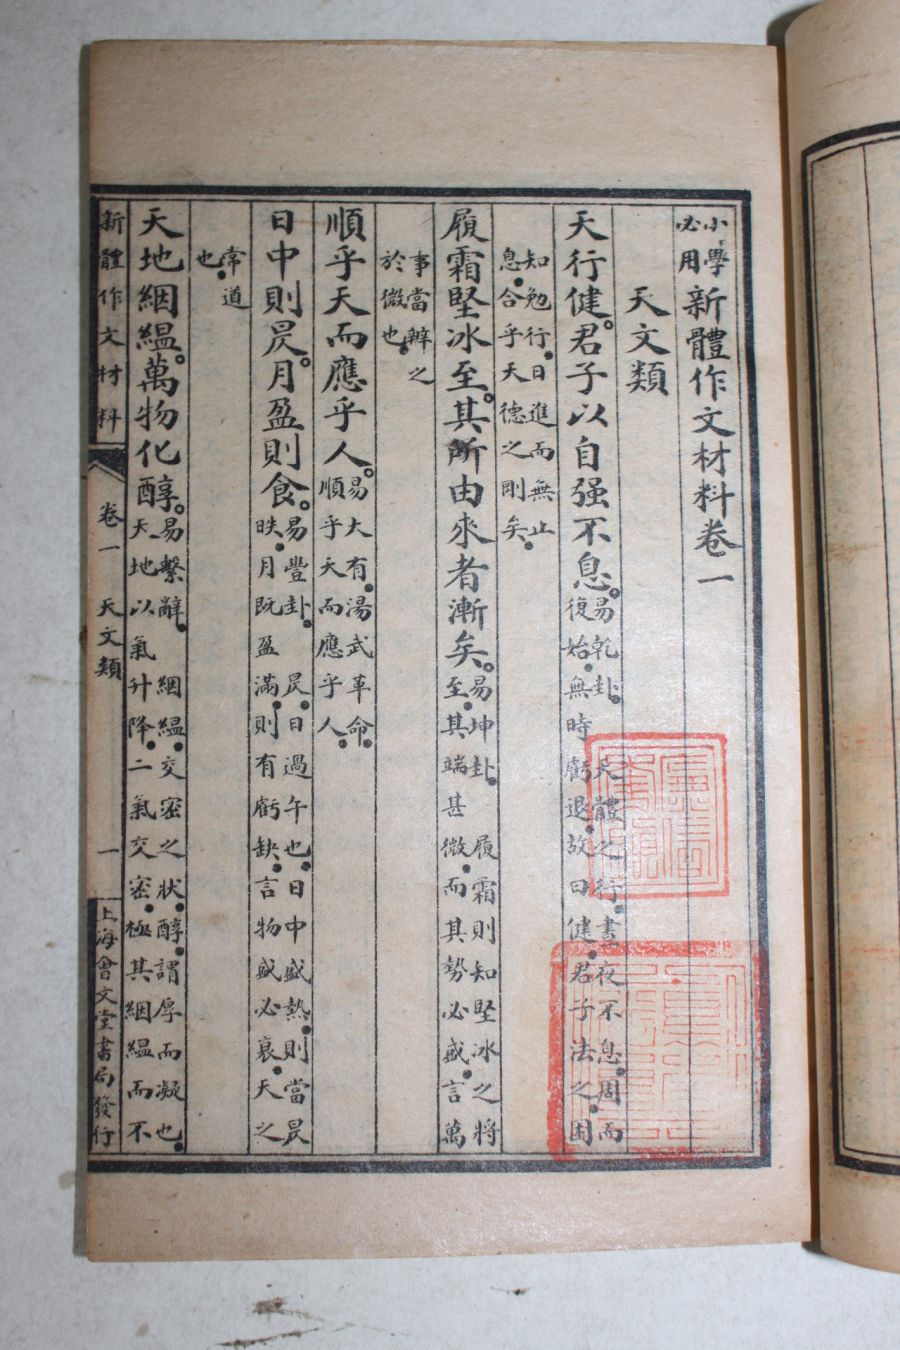 小學必用新體作文材料卷一
天文類
天行健。君子以自强不息。易乾卦。天體之行。晝夜不息。周而
復始。無時虧退。故曰健。君子法之。困
知勉行。日進而無止
息。合乎天德之剛矣。
履霜堅冰至。其所由來者漸矣。易坤卦。履霜則知堅冰之將
至。其端甚微。而其勢必盛。言萬
事當辦之
於微也。
順乎天而應乎人。易大有。湯武革命。
順乎天而應乎人。
日中則昃。月盈則食。易豐卦。昃。日過午也。日中盛熱。則當昃
昳。月既盈滿。則有虧缺。言物盛必衰。天之
常道
也
天地絪緼。萬物化醇。易繫辭。絪緼。交密之狀。醇。謂厚而凝也。
天地以氣升降。二氣交密。極其絪緼而不
新體作文材料 卷一 天文類 一 上海會文堂書局發行